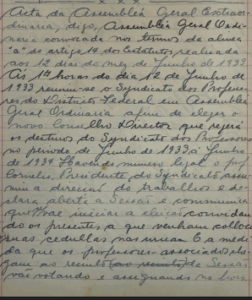 Acta da Assembléa Geral Extraor-
dinaria, digo, Assembléa Geral Ordi-
naria convocada nos termos da alinea
"a" do artigo 14 dos Estatutos, realizada
aos 12 dias do mez de Junho de 1933.
Às horas do dia 12 de Junho de
1933 reuniu-se o Syndicato dos Professo-
res do Districto Federal em Assembléa
Geral Ordinaria afim de eleger o
novo Conselho Director que regerá
os destinos do Syndicato dos Professores
no periodo de Junho de 1933 a Junho
de 1934. Havendo numero legal o prof.
Cornelio, Presidente do Syndicato assu-
miu a direcção do trabalhos e de-
clara aberta a Sessão e communica
que vai iniciar a eleição convidan-
do os presentes a que venham colloca-
r suas cedulas nas urnas. E a medi-
da que os professores associados che-
gam ao recinto da Sessão
vão votando e assignando no livro